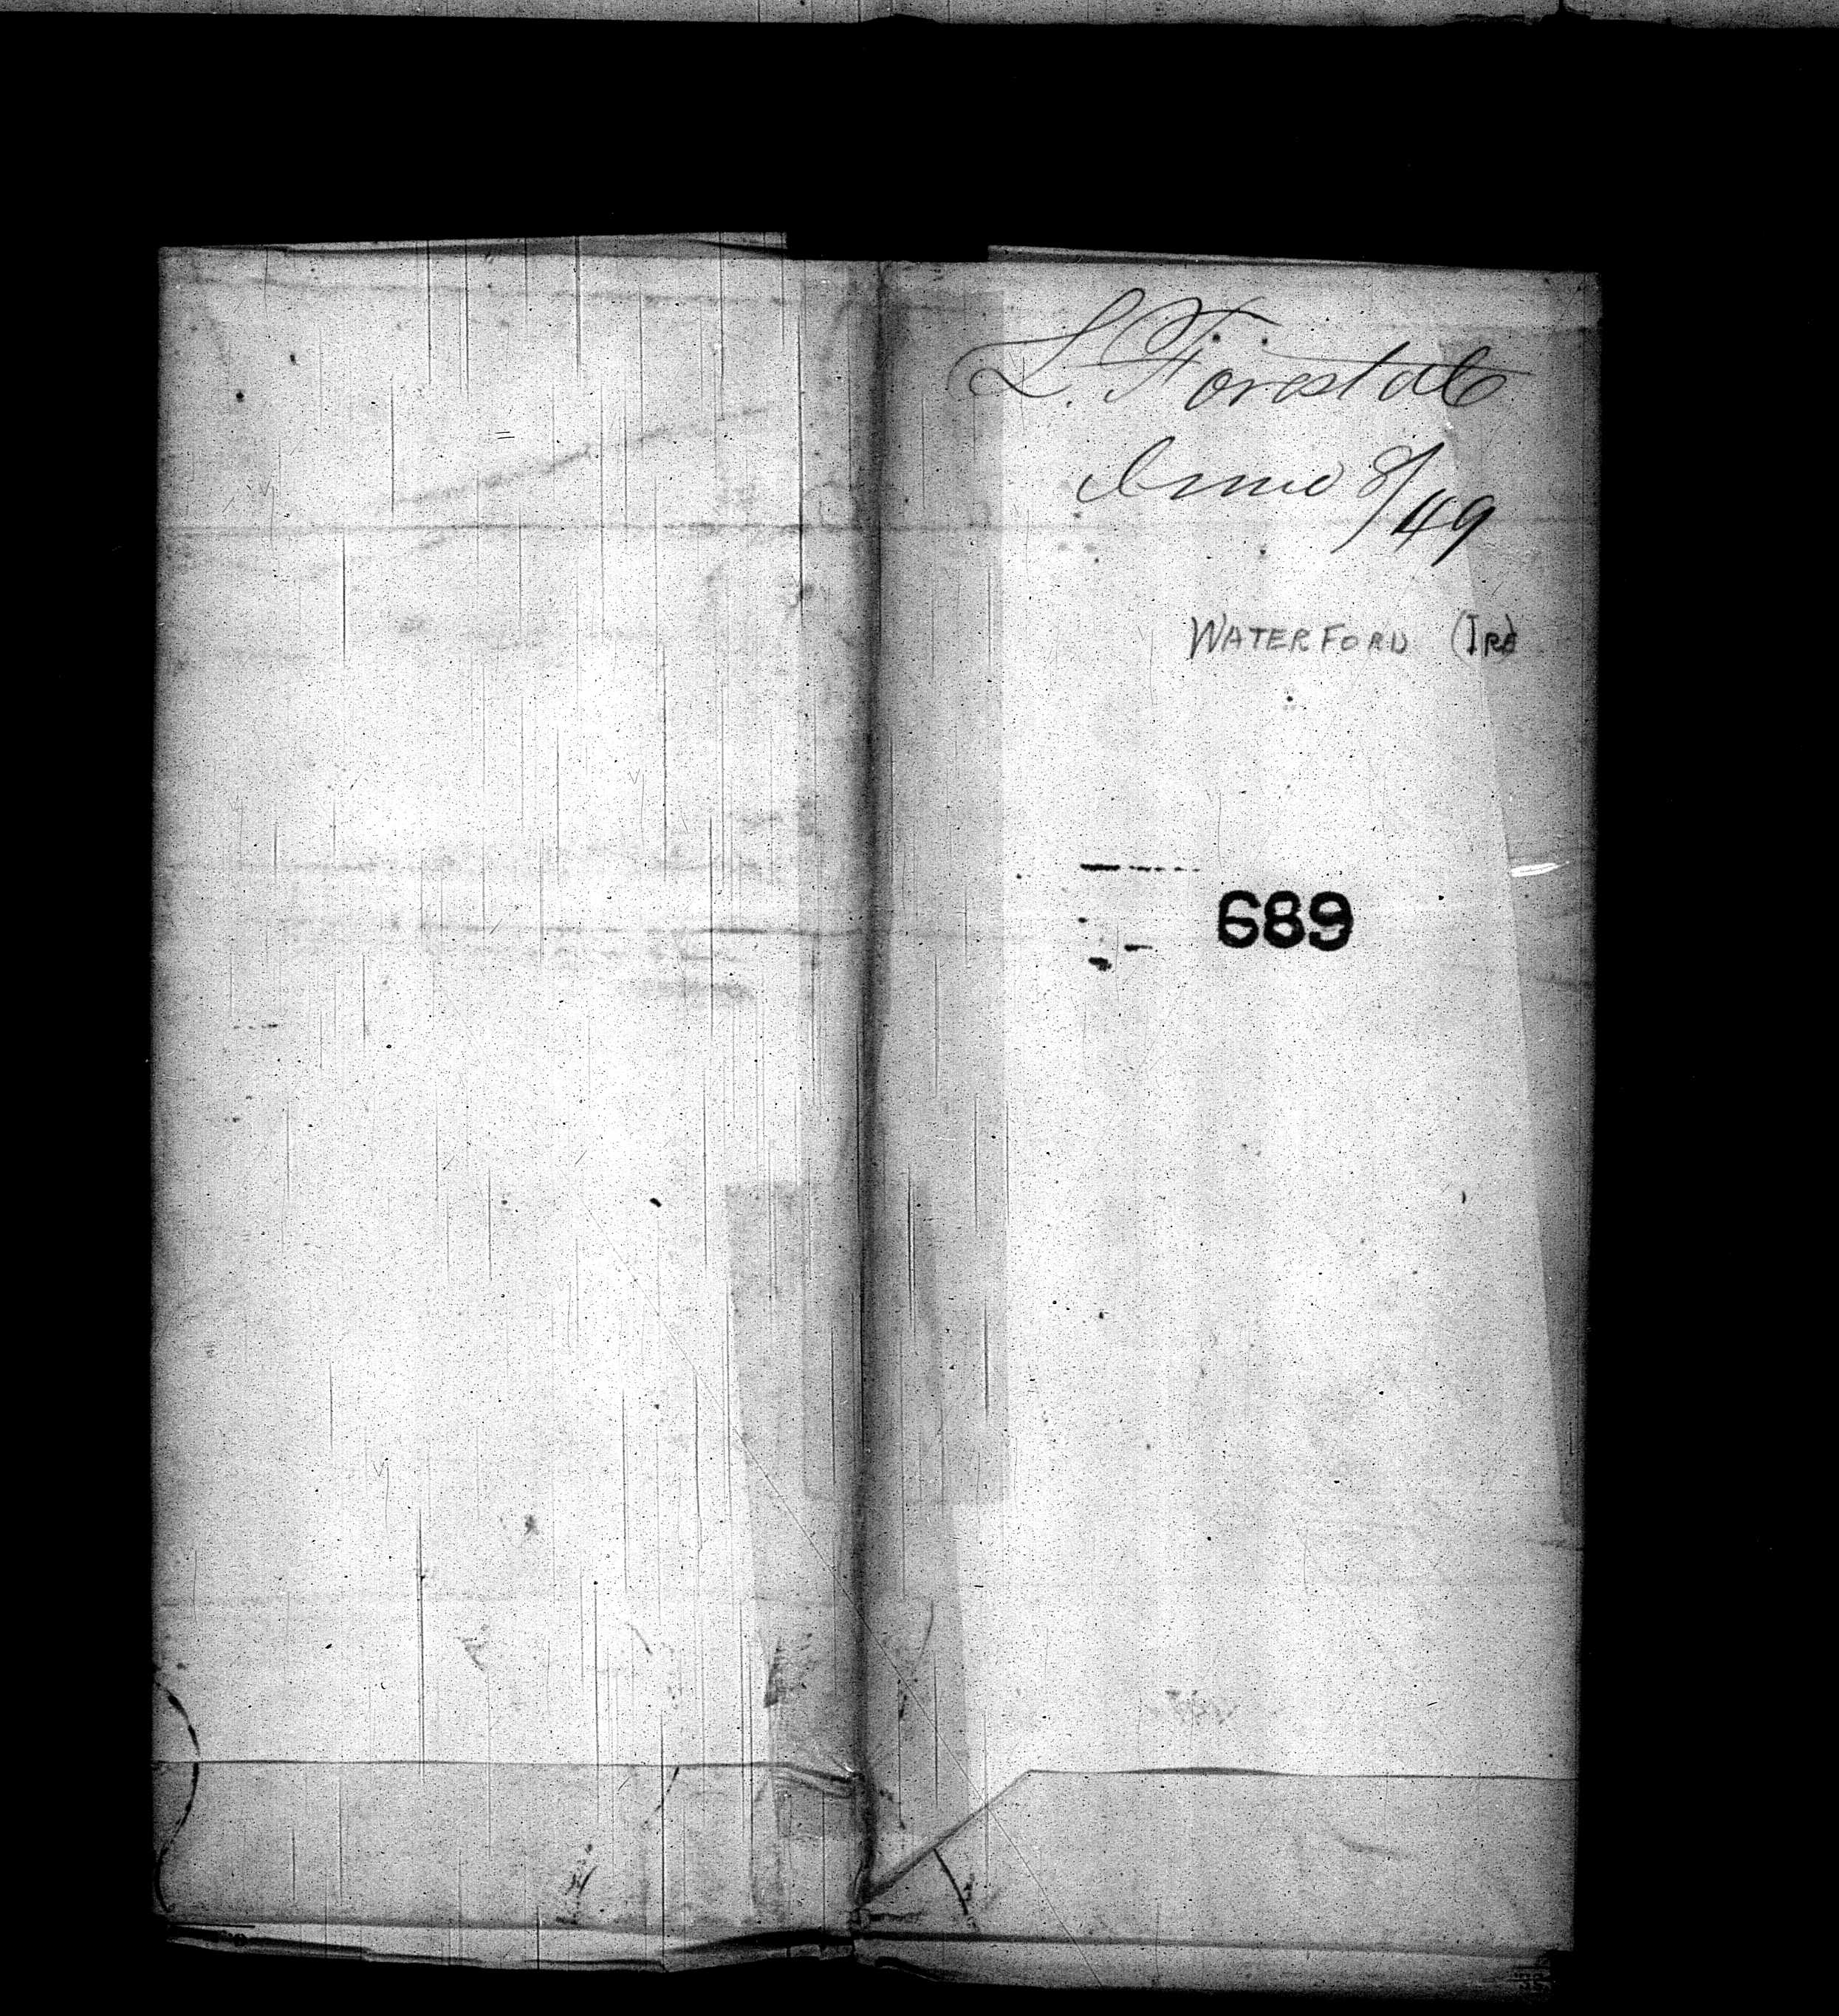 L. Forestall
Anno 8/49
WATERFORD (IRE)
689